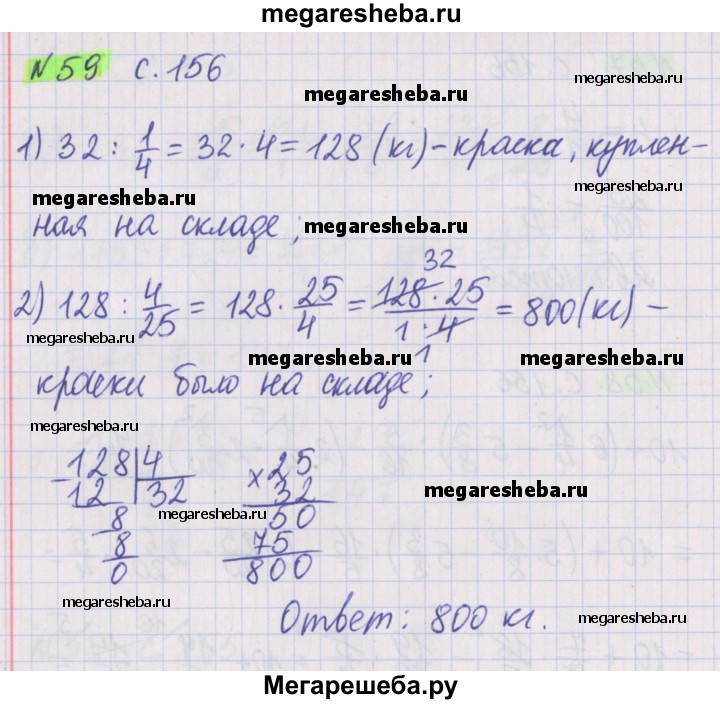 megaresheba.ru
№ 59 с. 156
megaresheba.ru
megaresheba.ru
1) 32 : 1/4 = 32 · 4 = 128 (кг) – краска, куплен-
megaresheba.ru
megaresheba.ru
ная на складе;
megaresheba.ru
32
2) 128 : 4/25 = 128 · 25/4 = 128 · 25 / 1 · 4 = 800 (кг) –
1
megaresheba.ru
megaresheba.ru
megaresheba.ru
краски было на складе;
megaresheba.ru
128 | 4
12 | 32
8
8
0
× 25
32
50
75
800
megaresheba.ru
megaresheba.ru
megaresheba.ru
Ответ: 800 кг.
megaresheba.ru
Мегарешеба.ру